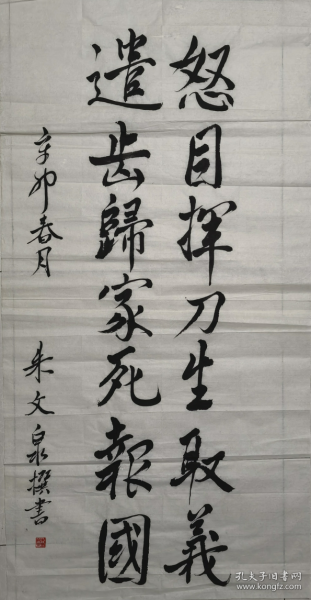 怒目揮刀生取義
遣齿歸家死報國
辛卯春月
朱文泉撰書
孔夫子旧书网